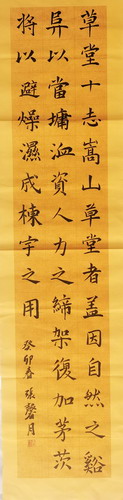 草堂十志嵩山草堂者盖因自然之谿
异以當墉洫资人力之締架復加茅茨
将以避燥濕成棟宇之用
癸卯春 張馨月